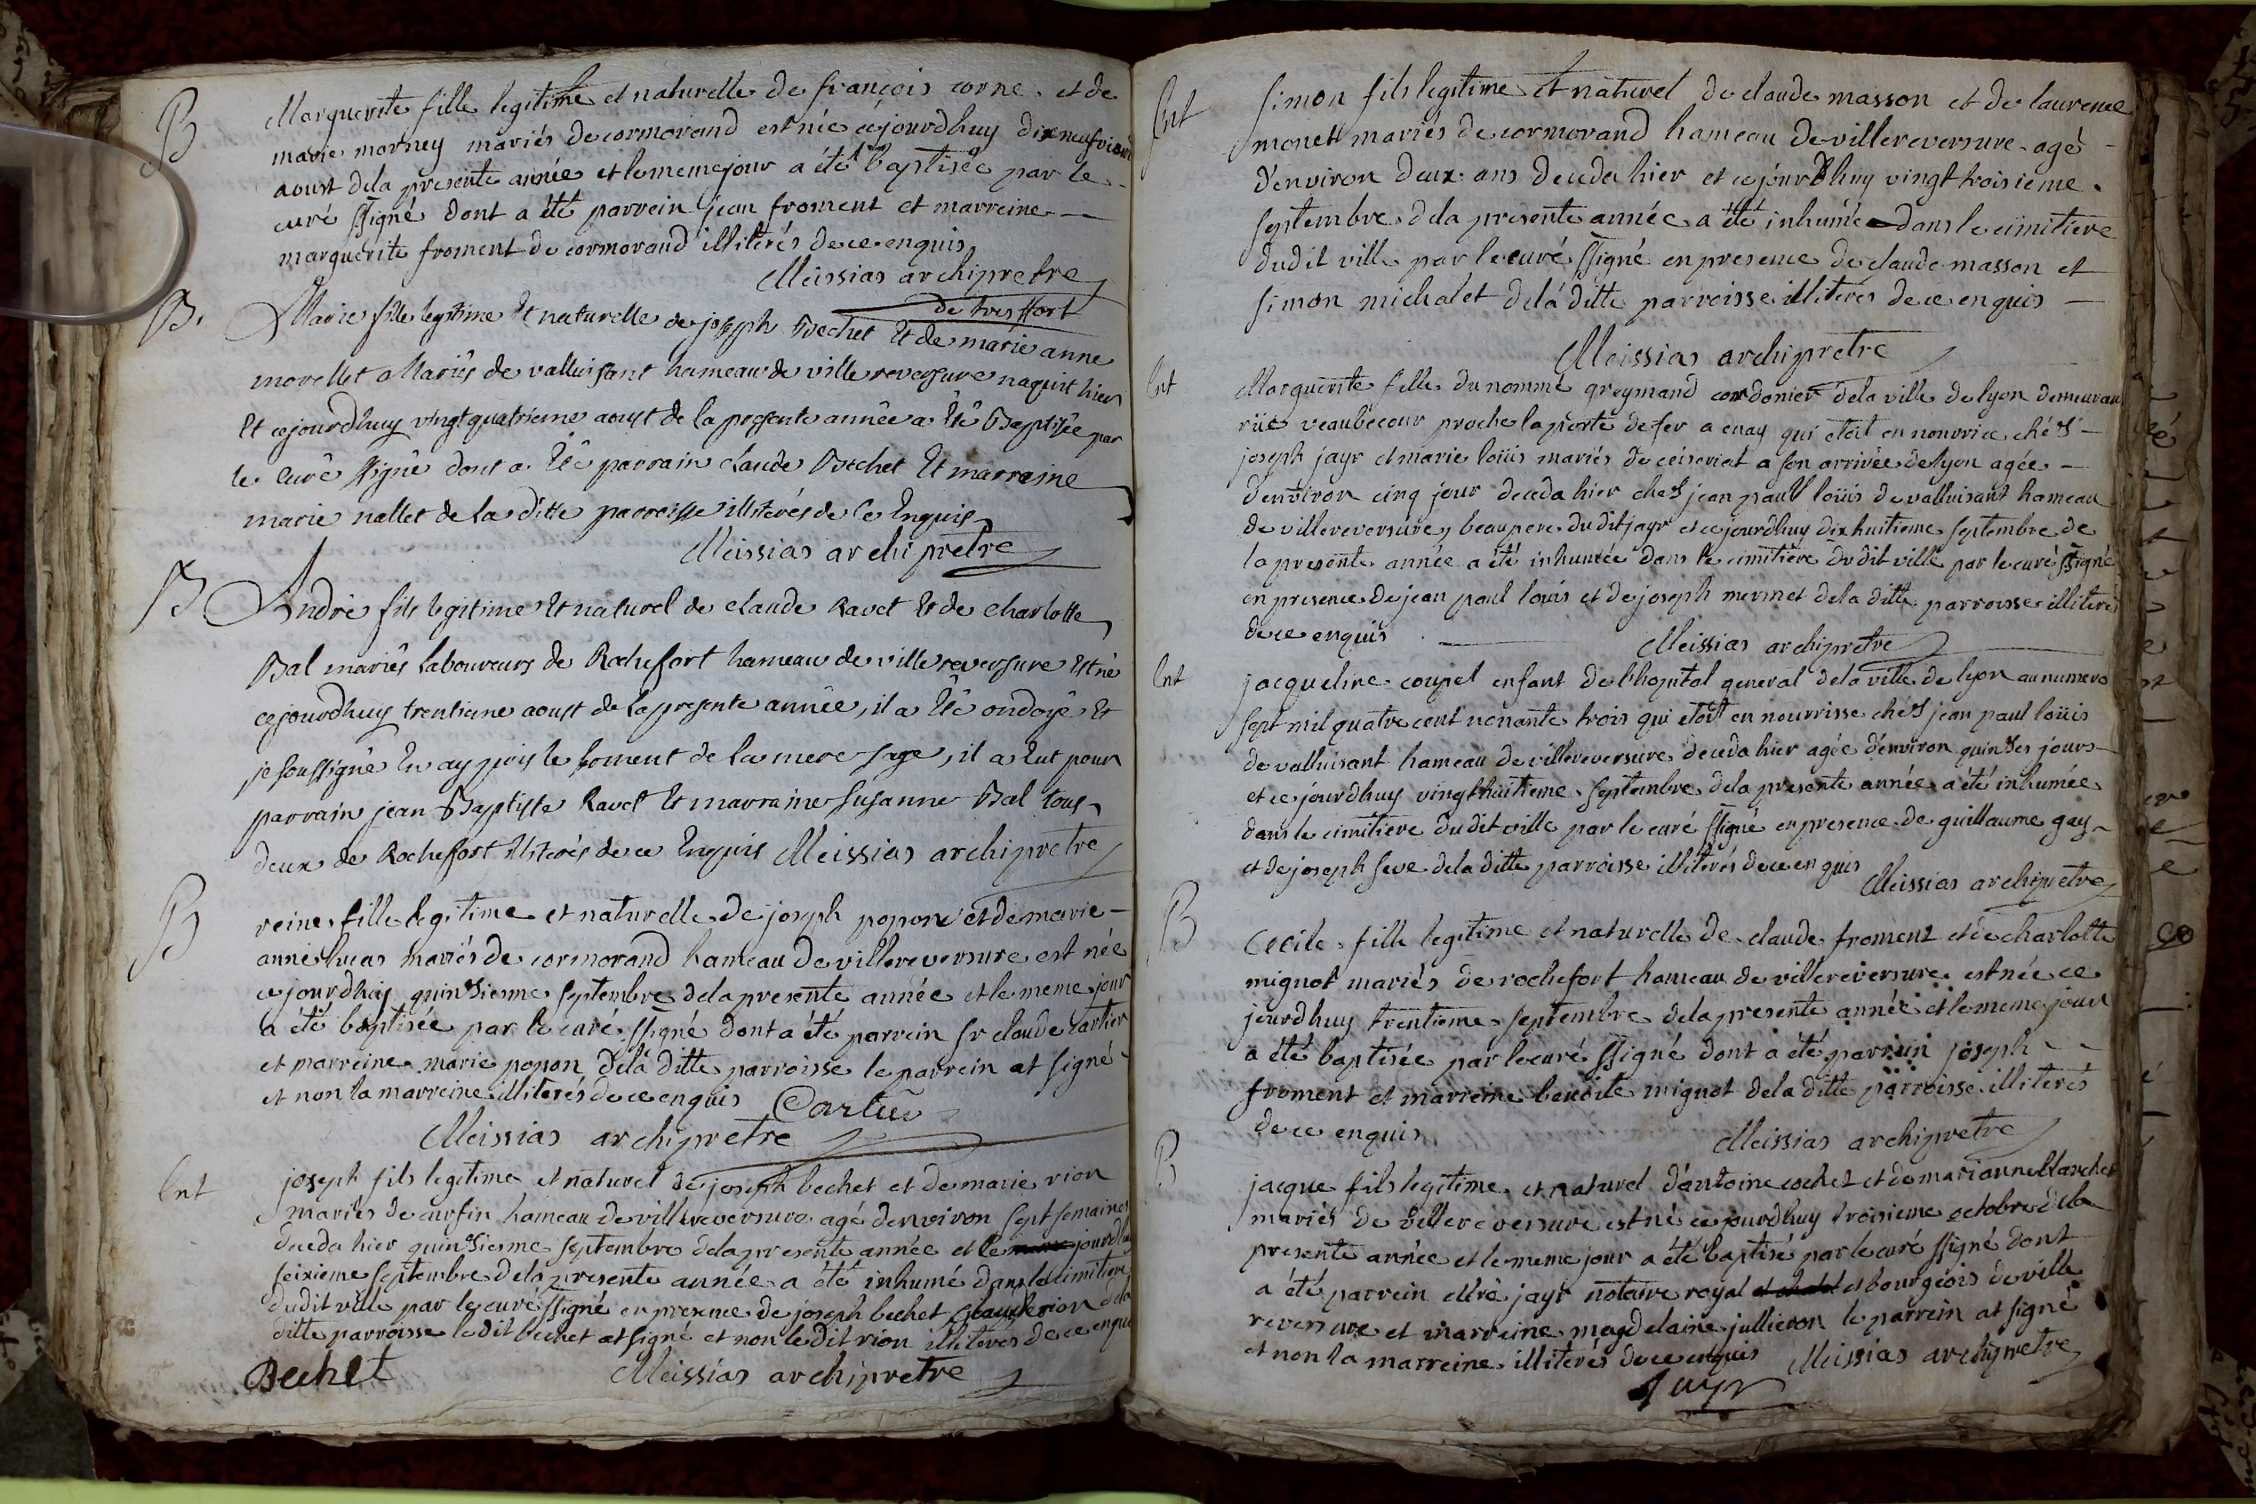 B
Marguerite fille legitime et naturelle de françois corne et de
marie morney mariés de cormorand est née cejourdhuy dixneufvieme
aoust dela presente année et lememejour a été baptisée par le
curé ssigné dont a été parrein jean froment et marreine
marguerite froment de cormorand illiterés de ce enquis
Meissias archipretre
de tressfort
B.
Marie fille legitime Et naturelle de joseph Bechet Et de marie anne
morellet Mariés de valluisant hameau de ville reversure naquit hier
Et cejourdhuy vingtquatrieme aoust de la presente année a Eté Baptisée par
le Curé ssigné dont a Eté parrain claude Bechet Et marraine
marie nallet de la ditte parroisse illiterés de Ce Enquis
Meissias archipretre
B
André fils legitime Et naturel de claude Ravet Et de charlotte
Bal mariés laboureurs de Rochefort hameau de ville reversure Est né
cejourdhuy trentieme aoust de la presente année, il a Eté ondoyé Et
je soussigné En ay pris le serment de la mere sage, il a Eut pour
parrain jean Baptiste Ravet Et marraine susanne Bal tous
deux de Rochefort illiterés de ce Enquis Meissias archipretre
B
reine fille legitime et naturelle de joseph popon et de marie
anne lucas mariés de cormorand hameau de villereversure est née
cejourdhuy quinsieme septembre dela presente année et le meme jour
a été baptisée par le curé ssigné dont a été parrein sr claude cartier
et marreine marie popon dela ditte parroisse le parrein at signé
et non la marreine illiterés de ce enquis Cartier
Meissias archipretre
Ent
joseph fils legitime et naturel de joseph bechet et de marie rion
mariés de curfin hameau de villereversure agé denviron sept semaines
deceda hier quinsieme septembre dela presente année et ce jourdhuy
seixieme septembre dela presente année a été inhumé dans le cimitiere
dudit ville par le curé ssigné en presence de joseph bechet claude rion dela
ditte parroisse ledit bechet at signé et non ledit rion illiterés de ce enquis
Bechet Meissias archipretre
Ent
simon fils legitime et naturel de claude masson et de laurence
monet mariés de cormorand hameau de villereversure agé
d'environ deux ans deceda hier et cejourdhuy vingt troisieme
septembre dela presente année a été inhumé dans le cimitiere
dudit ville par le curé ssigné en presence de claude masson et
simon michalet dela ditte parroisse illiterés de ce enquis
Meissias archipretre
Ent
Marguerite fille du nommé greymand cordonier dela ville de lyon demeuran
rüe veaubecour proche la porte de fer a enay qui etoit en nourrice chés
joseph jayr et marie loüis mariés de ceiseriat a son arrivée de lyon agée
denviron cinq jour deceda hier ches jean paul loüis de valluisant hameau
de villereversure, beaupere du dit jayr et cejourdhuy dixhuitieme septembre de
la presente année a été inhumée dans le cimitiere dudit ville par le curé ssigné
en presence de jean paul louis et de joseph mermet dela ditte parroisse illiterés
de ce enquis Meissias archipretre
Ent
jacqueline coupel enfant de l'hopital general dela ville de lyon au numero
sept mil quatre cent nonante trois qui etoit en nourrisse chés jean paul loüis
de valluisant hameau de villereversure deceda hier agée d'environ quinses jours
et ce jourdhuy vingthuitieme septembre dela presente année a été inhumée
dans le cimitiere dudit ville par le curé ssigné en presence de guillaume gay
et de joseph seve dela ditte parroisse illiterés de ce enquis
Meissias archipretre
B
Cecile fille legitime et naturelle de claude froment et de charlotte
mignot mariés de rochefort hameau de villereversure est née ce
jourdhuy trentieme septembre dela presente année et le meme jour
a été baptisée par le curé ssigné dont a été parrein joseph
froment et marreine benoite mignot dela ditte parroisse illiterés
de ce enquis Meissias archipretre
B
jacque fils legitime et naturel d'antoine cochet et de marianne blanchet
mariés de villereversure est né ce jourdhuy troisieme octobre dela
presente année et le meme jour a été baptisé par le curé ssigné dont
a été parrein Mre jayr notaire royal et bourgeois de ville
reversure et marreine magdelaine jullieron le parrein at signé
et non la marreine illiterés de ce enquis Meissias archipretre
Jayr